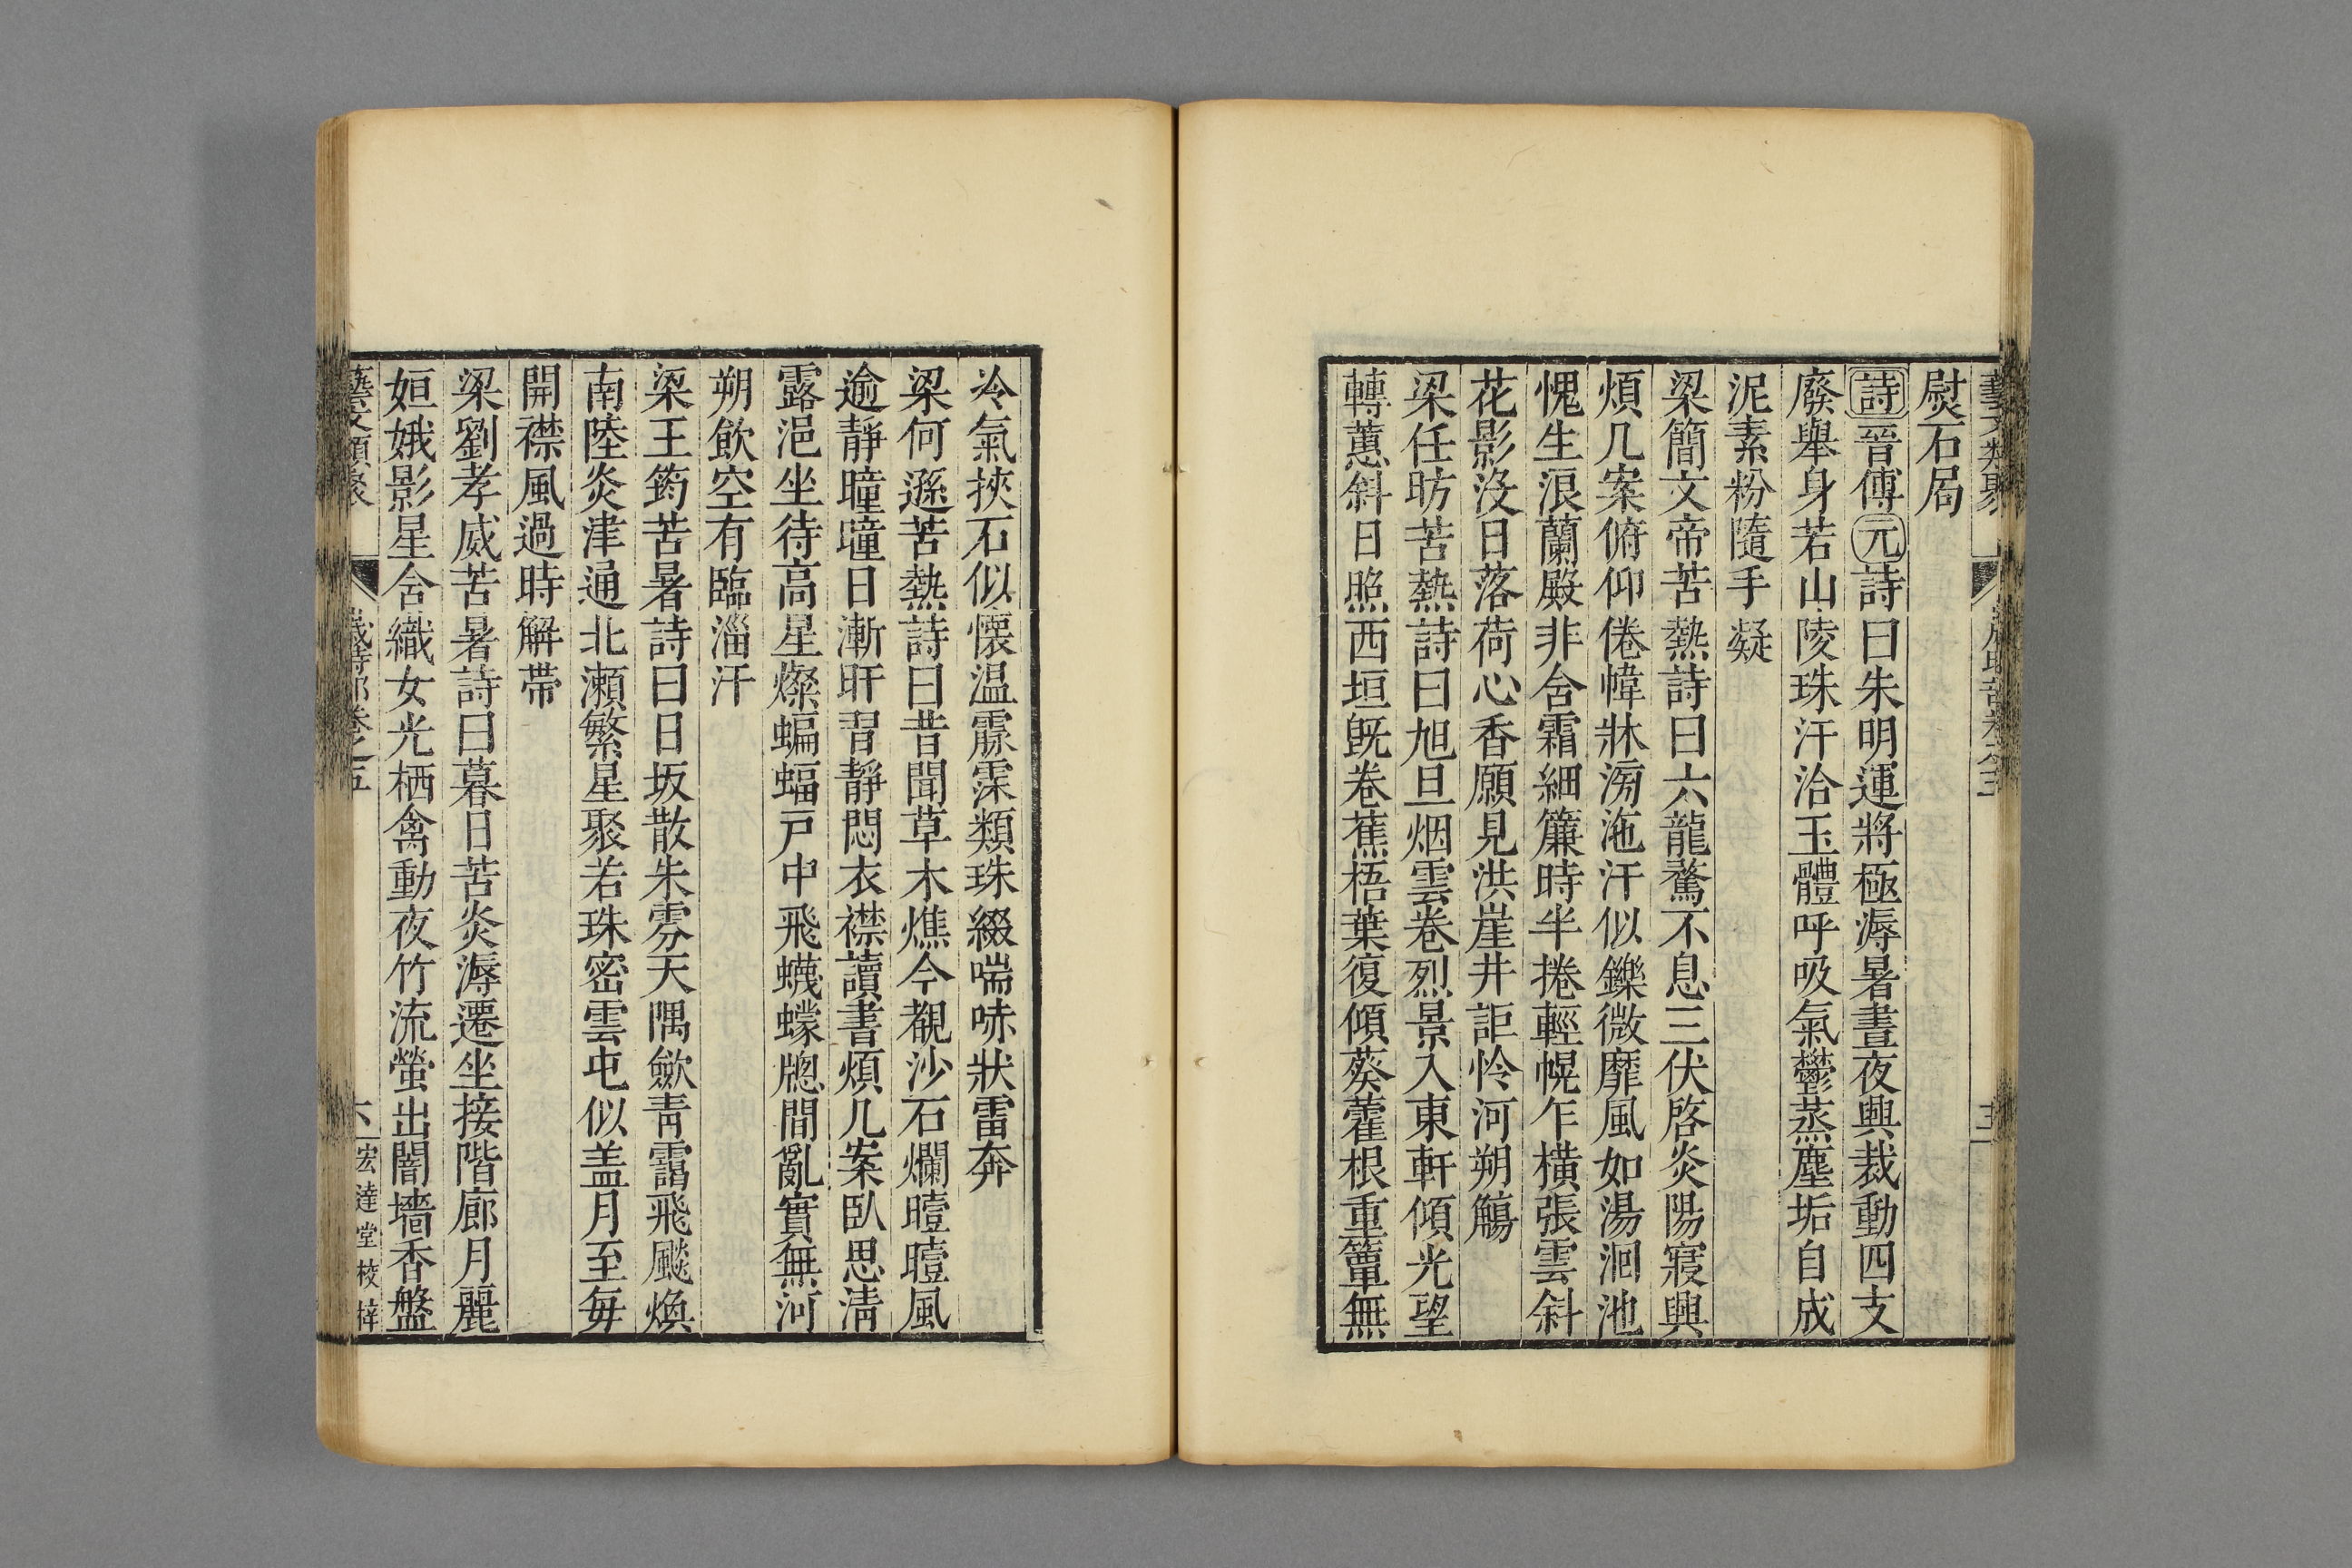 熨石局
詩晉傅元詩曰朱明運將極溽暑晝夜興裁動四支
廢舉身若山陵珠汗洽玉體呼吸氣鬱蒸塵垢自成
泥素粉隨手凝
梁簡文帝苦熱詩曰六龍騖不息三伏啓炎陽寢興
煩几案俯仰倦幃牀滂沲汗似鑠微靡風如湯洄池
愧生浪蘭殿非含霜細簾時半捲輕幌乍橫張雲斜
花影沒日落荷心香願見洪崖井詎怜河朔觴
梁任昉苦熱詩曰旭旦烟雲卷烈景入東軒傾光望
轉蕙斜日照西垣旣卷蕉梧葉復傾葵藿根重簟無
冷氣挾石似懷温霡霂類珠綴喘哧狀雷奔
梁何遜苦熱詩曰昔聞草木燋今覩沙石爛曀曀風
逾靜曈曈日漸旰習靜悶衣襟讀書煩几案臥思清
露浥坐待高星燦蝙蝠戸中飛蠛蠓牕間亂實無河
朔飲空有臨淄汗
梁王筠苦暑詩曰日坂散朱雰天隅斂青靄飛飈煥
南陸炎津通北瀬繁星聚若珠密雲屯似盖月至每
開襟風過時解帶
梁劉孝威苦暑詩曰暮日苦炎溽遷坐接階廊月麗
姮娥影星含織女光栖禽動夜竹流螢出闇墻香盤
藝文類聚 歲時部卷之五 六 宏達堂校梓